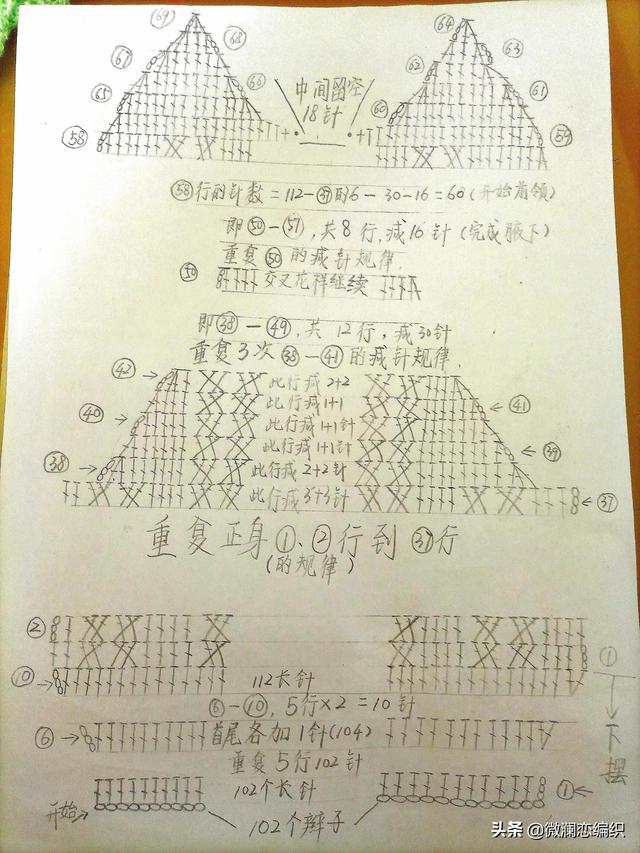 69 68 64
67 63
66 62
65 中间留空 60 61
58 18针 59
58行的针数=112-37的6-30-16=60(开始前领)
即50-57,共8行,减16针(完成腋下)
重复50的减针规律.
50 交叉花样继续
即38-49,共12行,减30针
重复3次38-41的减针规律.
42 此行减2+2
此行减1+1
40 此行减1+1针 41
此行减1+1针 39
38 此行减2+2针
此行减3+3针 37
重复正身①、②行到37行
(的规律)
②
⑩ 112长针 ①
⑥-⑩,5行×2=10针
⑥ 首尾各加1针(104) 下摆
重复5行102针
102个长针 ①
开始
102个辫子
头条 @微澜恋编织